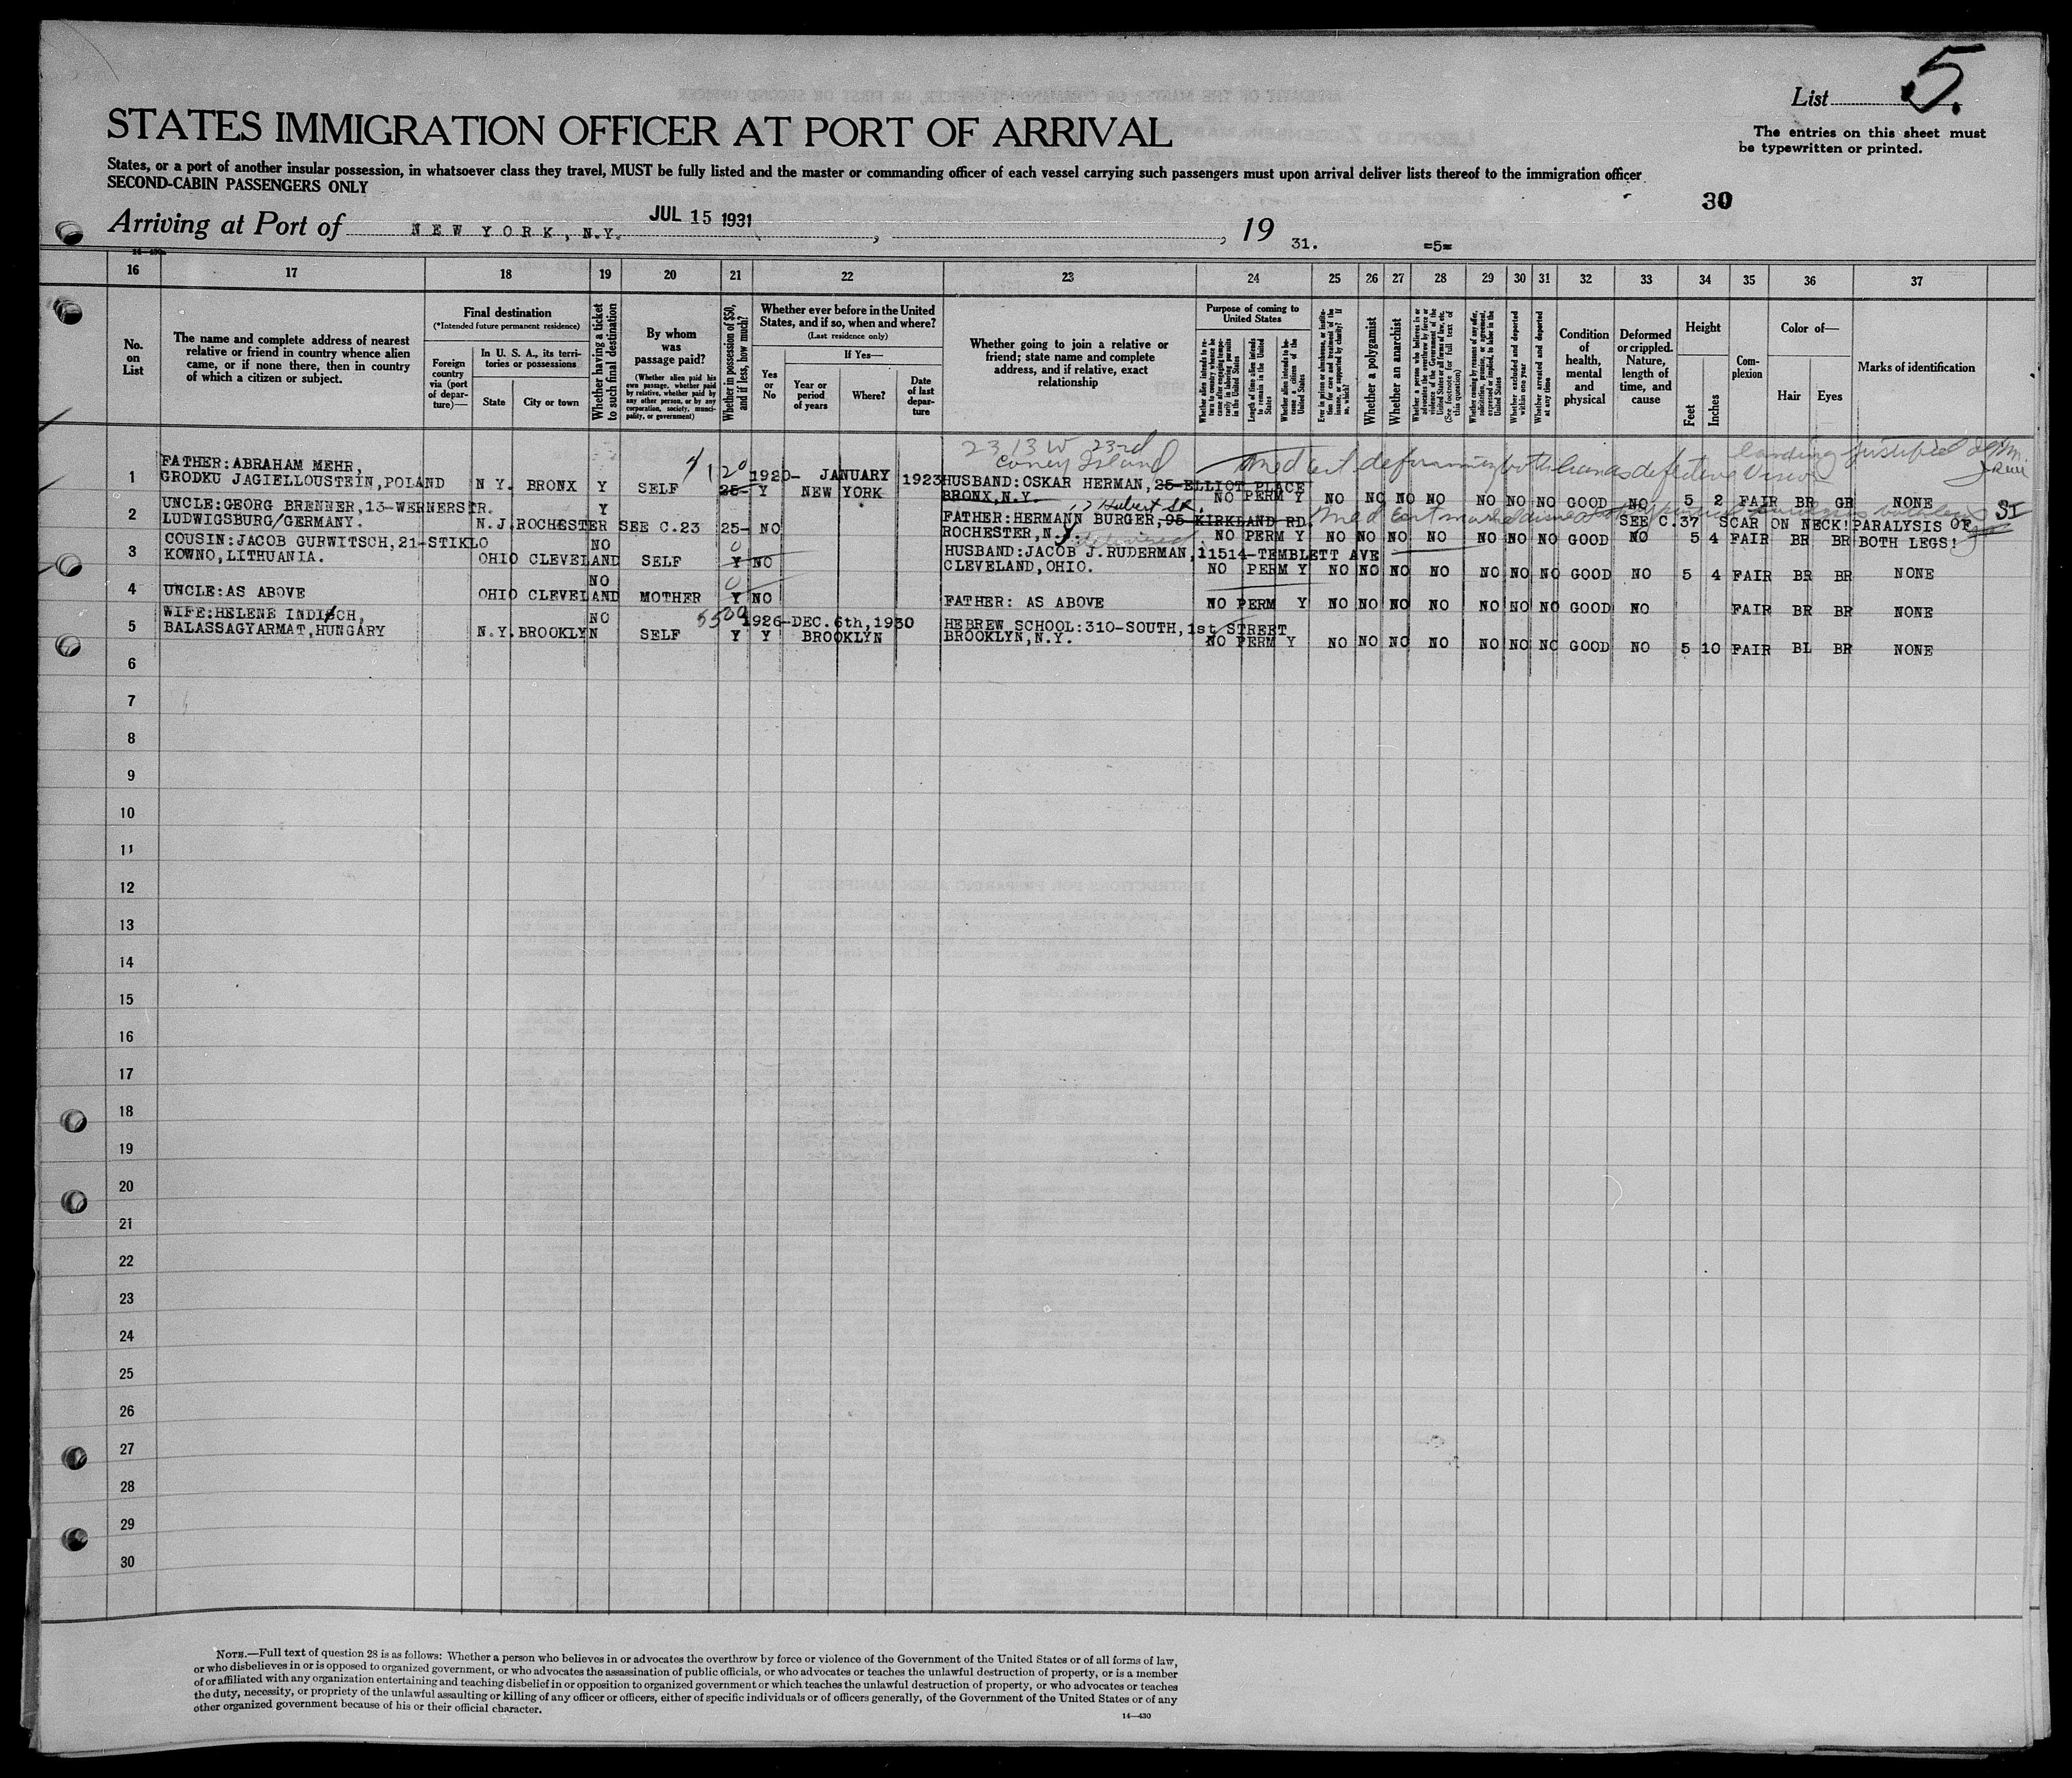 List 5.
STATES IMMIGRATION OFFICER AT PORT OF ARRIVAL
The entries on this sheet must
be typewritten or printed.
States, or a port of another insular possession, in whatsoever class they travel, MUST be fully listed and the master or commanding officer of each vessel carrying such passengers must upon arrival deliver lists thereof to the immigration officer
SECOND-CABIN PASSENGERS ONLY
30
Arriving at Port of NEW YORK, N.Y. JUL 15 1931, , 19 31. =5=
16 17 18 19 20 21 22 23 24 25 26 27 28 29 30 31 32 33 34 35 36 37
No. on List
The name and complete address of nearest
relative or friend in country whence alien
came, or if none there, then in country
of which a citizen or subject.
Final destination
(*Intended future permanent residence)
Foreign country via (port of departure)—
In U. S. A., its territories or possessions
State City or town
Whether having a ticket to such final destination
By whom was passage paid?
(Whether alien paid his own passage, whether paid by relative, whether paid by any other person, or by any corporation, society, municipality, or government)
Whether in possession of $50, and if less, how much?
Whether ever before in the United States, and if so, when and where?
(Last residence only)
Yes or No
If Yes—
Year or period of years
Where?
Date of last departure
Whether going to join a relative or
friend; state name and complete
address, and if relative, exact
relationship
Purpose of coming to United States
Whether alien intends to return to country whence he came after engaging temporarily in laboring pursuits in the United States
Length of time alien intends to remain in the United States
Whether alien intends to become a citizen of the United States
Ever in prison or almshouse, or institution for care and treatment of the insane, or supported by charity? If so, which?
Whether a polygamist
Whether an anarchist
Whether a person who believes in or advocates the overthrow by force or violence of the Government of the United States or all forms of law, etc. (See footnote for full text of this question)
Whether coming by reason of any offer, solicitation, promise, or agreement, expressed or implied, to labor in the United States
Whether excluded and deported within one year
Whether arrested and deported at any time
Condition of health, mental and physical
Deformed or crippled. Nature, length of time, and cause
Height
Feet Inches
Complexion
Color of—
Hair Eyes
Marks of identification
2313 W 23rd
Coney Island
landing justified
Med Cert deformity both hands defective Vision
1 FATHER:ABRAHAM MEHR,
GRODKU JAGIELLOUSTEIN,POLAND N Y. BRONX Y SELF 120 25- Y 1920- JANUARY 1923 NEW YORK HUSBAND:OSKAR HERMAN,25-ELLIOT PLACE
BRONX,N.Y. NO PERM Y NO NO NO NO NO NO NO GOOD NO 5 2 FAIR BR GR NONE
17 Hubert St. SI
2 UNCLE:GEORG BRENNER,13-WERNERSTR. Y
LUDWIGSBURG/GERMANY. N.J.ROCHESTER SEE C.23 25- NO FATHER:HERMANN BURGER,95-KIRKLAND RD. SEE C.37 SCAR ON NECK!PARALYSIS OF
ROCHESTER,N.Y. NO PERM Y NO NO NO NO NO NO NO GOOD NO 5 4 FAIR BR BR BOTH LEGS!
3 COUSIN:JACOB GURWITSCH,21-STIKLO NO 0
KOWNO,LITHUANIA. OHIO CLEVELAND SELF Y NO HUSBAND:JACOB J.RUDERMAN,11514-TEMBLETT AVE
CLEVELAND,OHIO. NO PERM Y NO NO NO NO NO NO NO GOOD NO 5 4 FAIR BR BR NONE
4 UNCLE:AS ABOVE OHIO CLEVELAND NO MOTHER 0 Y NO FATHER: AS ABOVE NO PERM Y NO NO NO NO NO NO NO GOOD NO FAIR BR BR NONE
5 WIFE:HELENE INDISCH, NO 1926-DEC.6th,1930 HEBREW SCHOOL:310-SOUTH,1st STREET
BALASSAGYARMAT,HUNGARY N.Y.BROOKLYN SELF Y Y BROOKLYN BROOKLYN,N.Y. NO PERM Y NO NO NO NO NO NO NO GOOD NO 5 10 FAIR BL BR NONE
6
7
8
9
10
11
12
13
14
15
16
17
18
19
20
21
22
23
24
25
26
27
28
29
30
NOTE.—Full text of question 28 is as follows: Whether a person who believes in or advocates the overthrow by force or violence of the Government of the United States or of all forms of law,
or who disbelieves in or is opposed to organized government, or who advocates the assassination of public officials, or who advocates or teaches the unlawful destruction of property, or is a member
of or affiliated with any organization entertaining and teaching disbelief in or opposition to organized government or which teaches the unlawful destruction of property, or who advocates or teaches
the duty, necessity, or propriety of the unlawful assaulting or killing of any officer or officers, either of specific individuals or of officers generally, of the Government of the United States or of any
other organized government because of his or their official character.
14—430